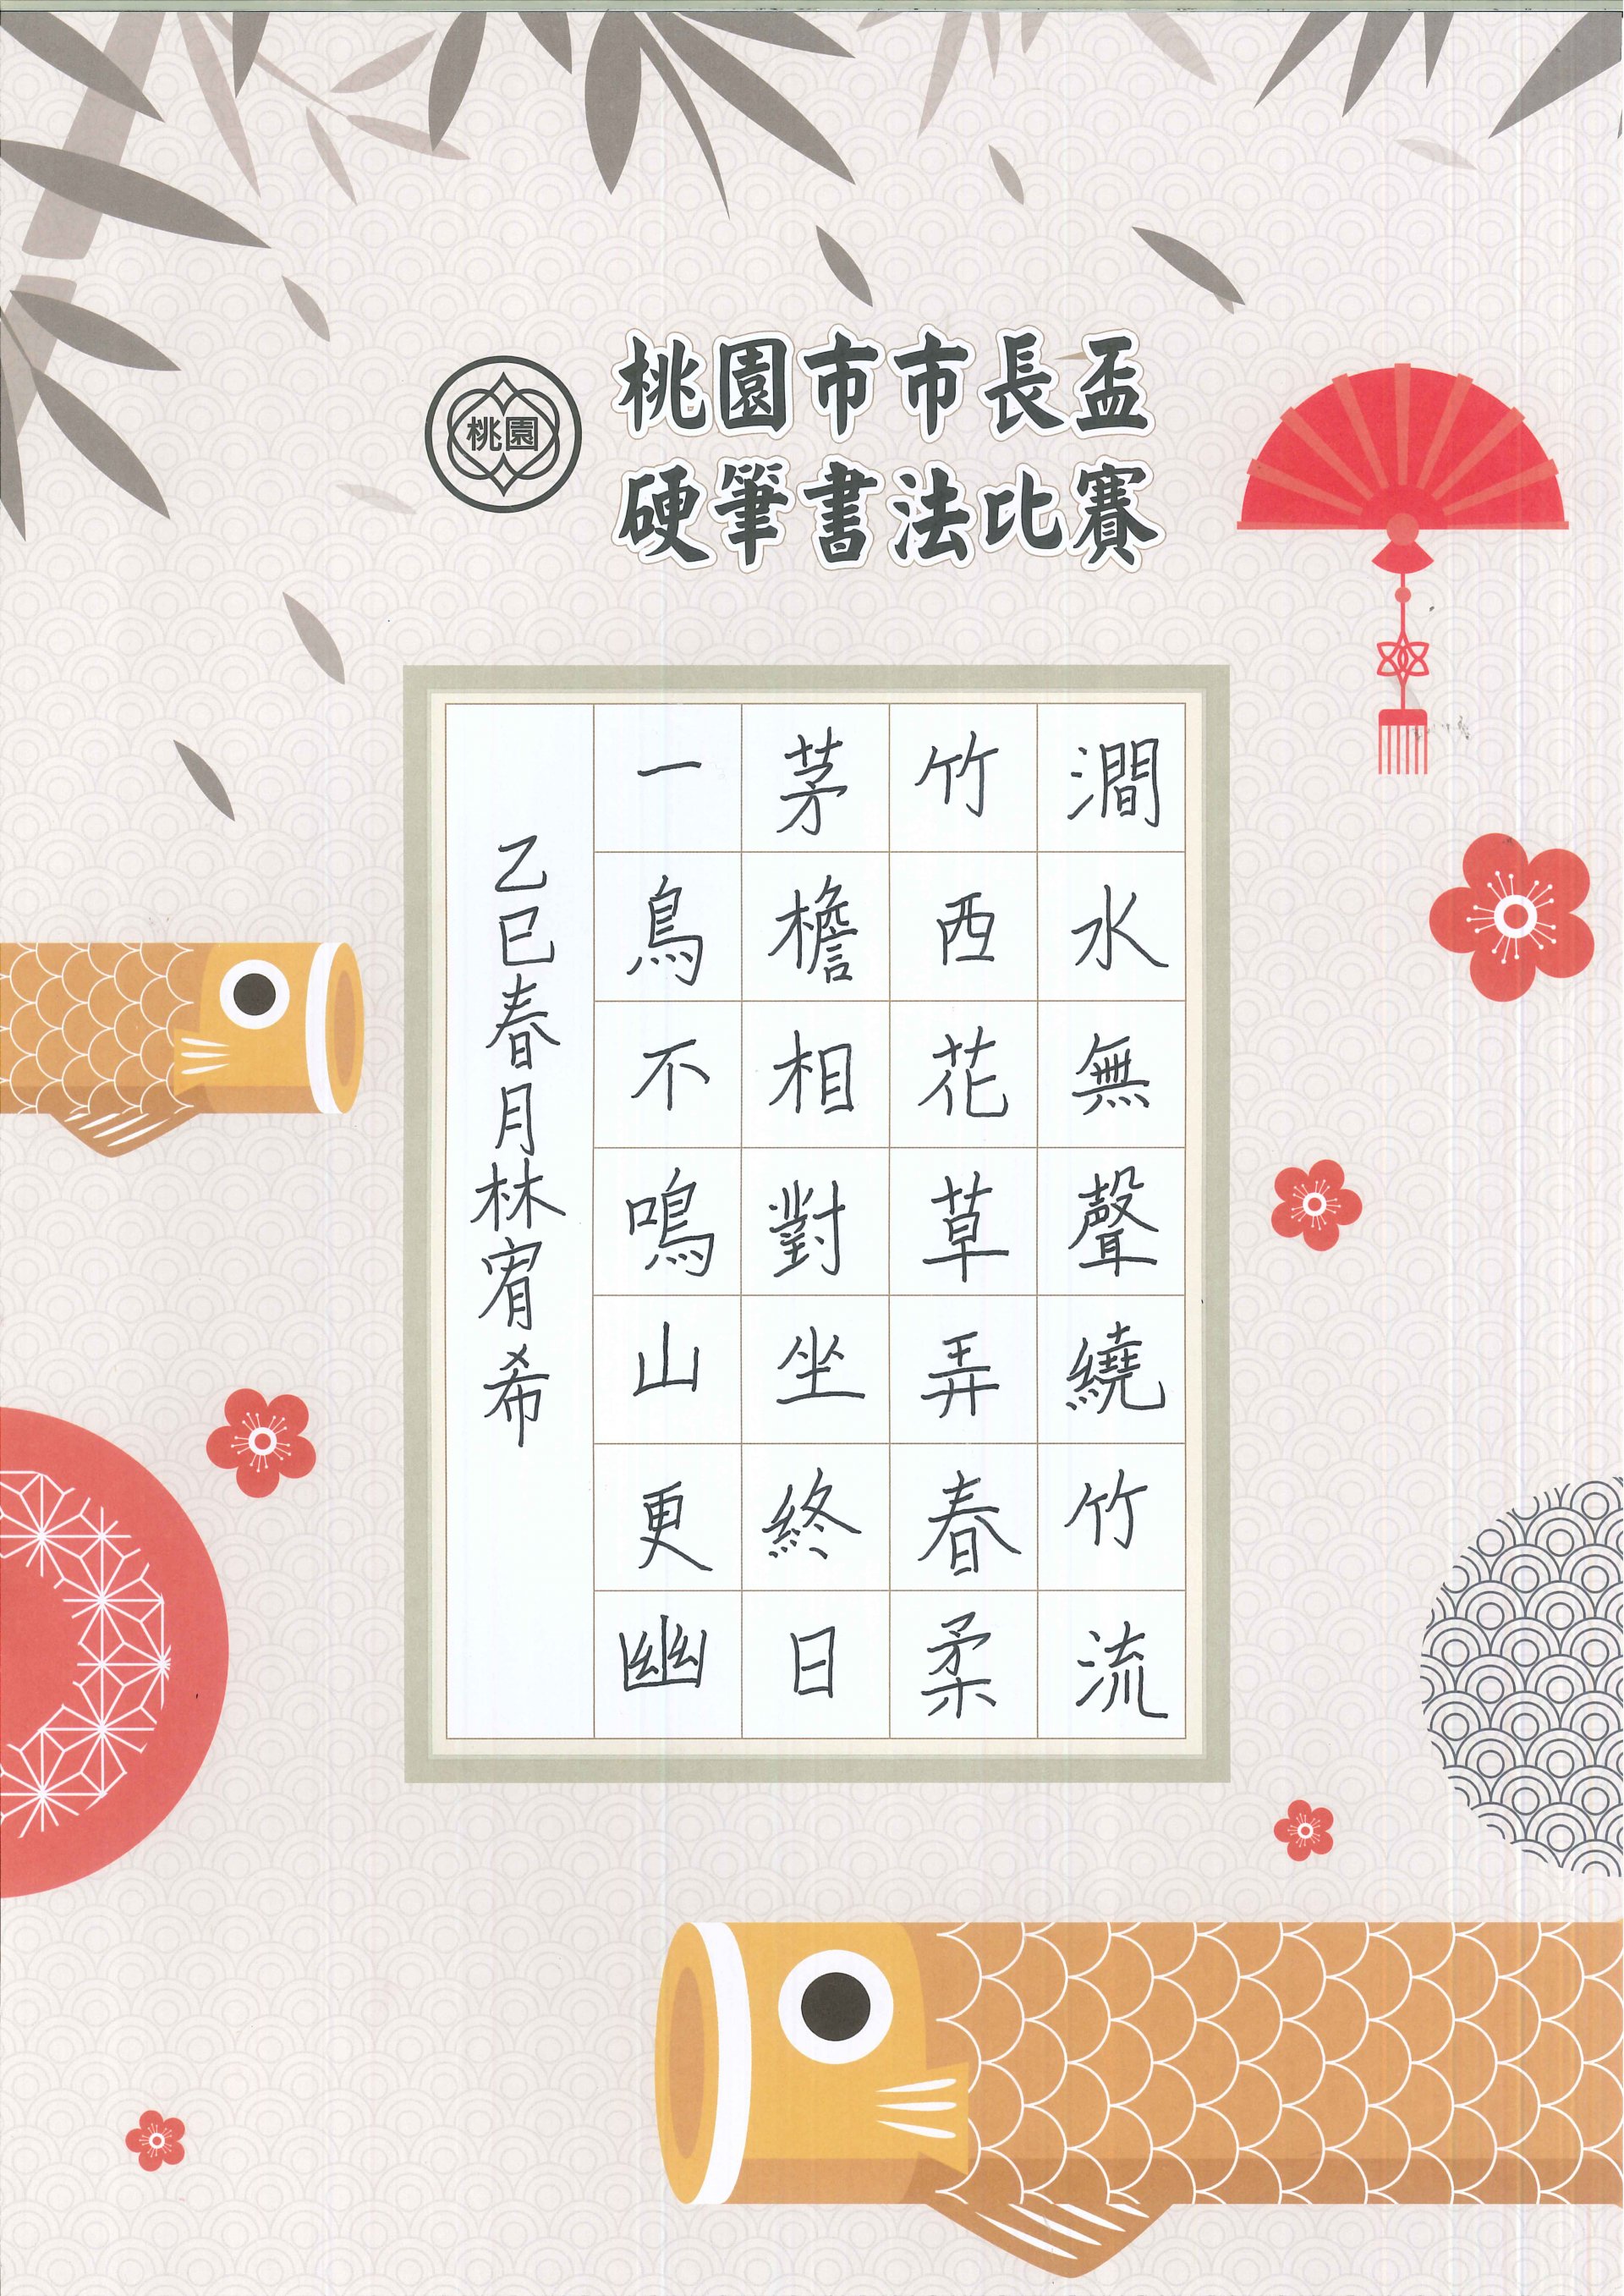 桃園
桃園市市長盃
硬筆書法比賽
澗水無聲繞竹流
竹西花草弄春柔
茅檐相對坐終日
一鳥不鳴山更幽
乙巳春月林宥希